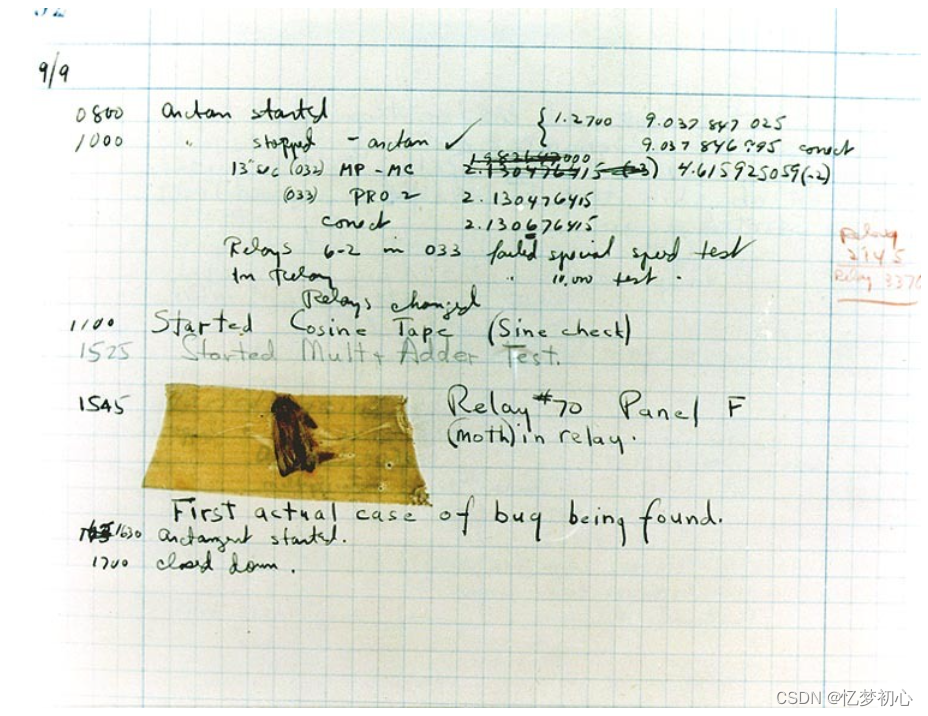 9/9
0800 arctan started { 1.2700 9.037 847 025
1000 " stopped - arctan ✓ 9.037 846 795 conect
13"uc (032) MP - MC 2.130476415 (-3) 4.615925059(-2)
(033) PRO 2 2.130476415
conect 2.130676415
Relays 6-2 in 033 failed special speed test
In Relay " 10,000 test .
Relays changed
Relay
2145
Relay 3370
1100 Started Cosine Tape (Sine check)
1525 Started Mult + Adder Test.
1545 Relay #70 Panel F
(moth) in relay.
First actual case of bug being found.
1630 arctangent started.
1700 closed down.
CSDN @忆梦初心